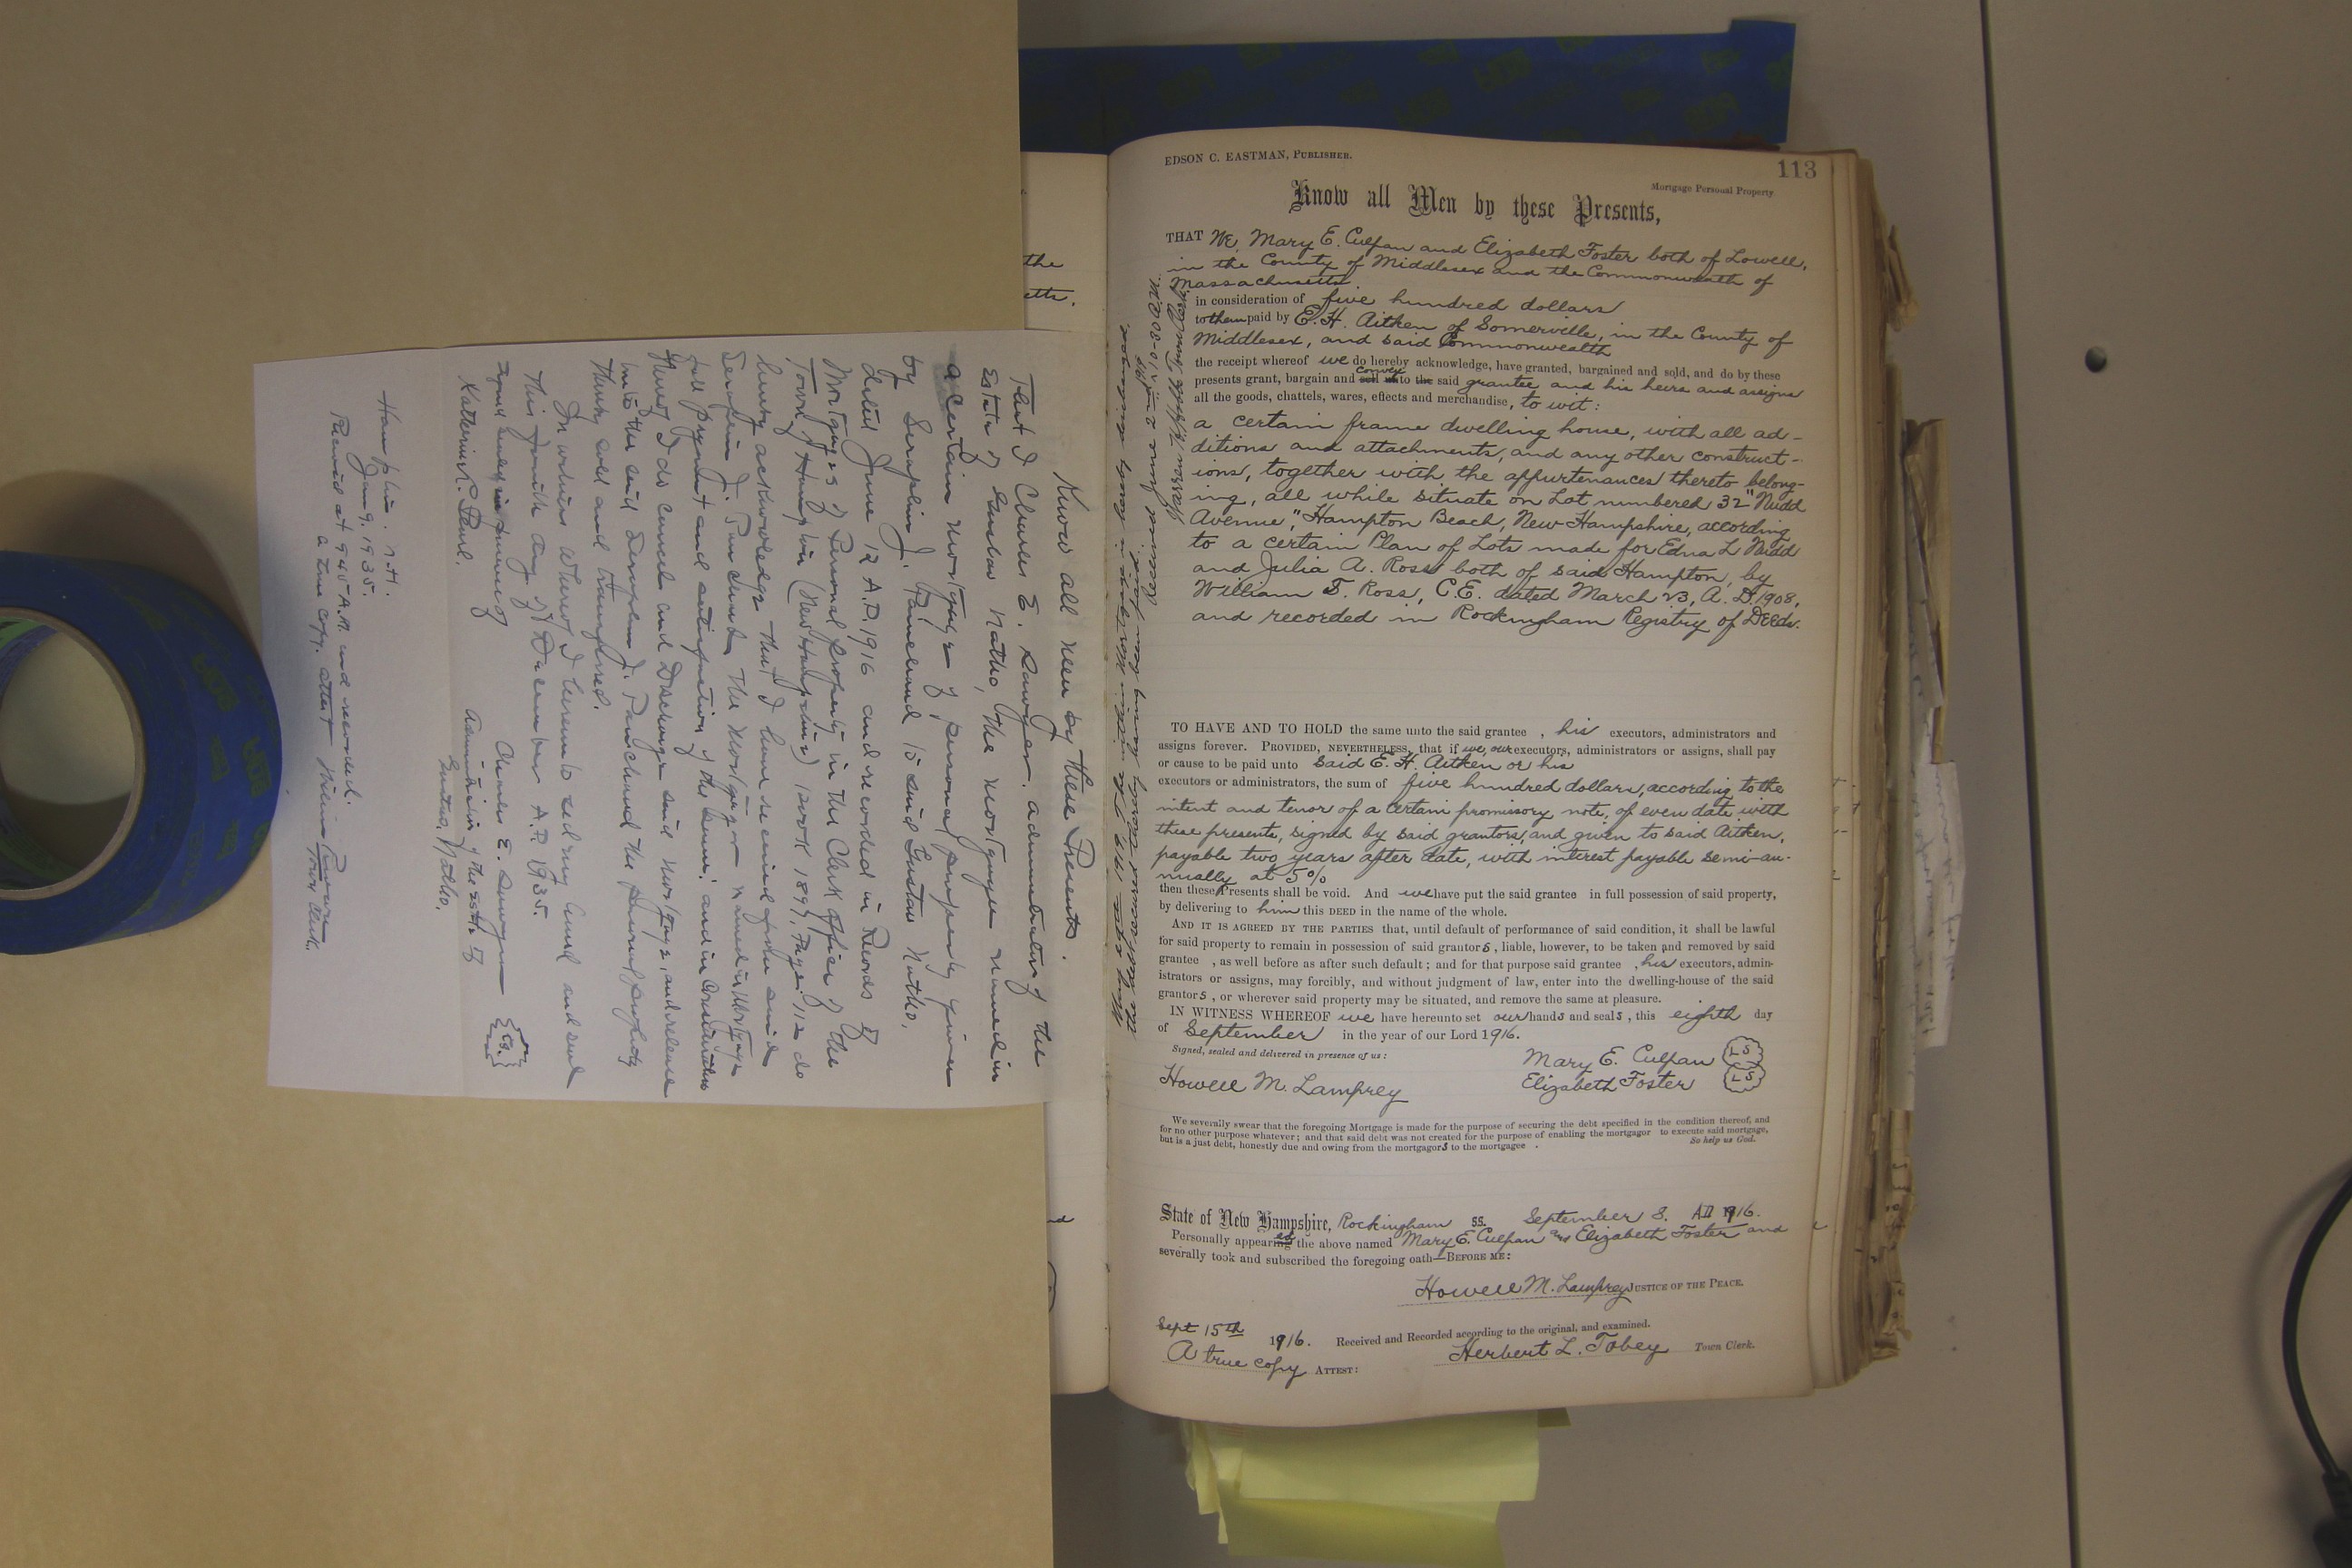 EDSON C. EASTMAN, PUBLISHER.
113
Mortgage Personal Property
Know all Men by these Presents,
THAT We, Mary E. Culpan and Elizabeth Foster both of Lowell,
in the County of Middlesex and the Commonwealth of
Massachusetts
in consideration of five hundred dollars
to them paid by E. H. Aitken of Somerville, in the County of
Middlesex, and said Commonwealth
the receipt whereof we do hereby acknowledge, have granted, bargained and sold, and do by these
presents grant, bargain and sell convey unto the said grantee and his heirs and assigns
all the goods, chattels, wares, effects and merchandise, to wit:
a certain frame dwelling house, with all ad-
ditions and attachments, and any other construct-
ions, together with the appurtenances thereto belong-
ing, all while situate on Lot numbered 32 "Nudd
Avenue", Hampton Beach, New Hampshire, according
to a certain Plan of Lots made for Edna L Nudd
and Julia A. Ross both of said Hampton, by
William T. Ross, C.E. dated March 23, A. D. 1908,
and recorded in Rockingham Registry of Deeds.
TO HAVE AND TO HOLD the same unto the said grantee , his executors, administrators and
assigns forever. PROVIDED, NEVERTHELESS, that if we, our executors, administrators or assigns, shall pay
or cause to be paid unto said E. H. Aitken or his
executors or administrators, the sum of five hundred dollars, according to the
intent and tenor of a certain promissory note, of even date with
these presents, signed by said grantors, and given to said Aitken,
payable two years after date, with interest payable semi-an-
nually at 5%
then these Presents shall be void. And we have put the said grantee in full possession of said property,
by delivering to him this DEED in the name of the whole.
AND IT IS AGREED BY THE PARTIES that, until default of performance of said condition, it shall be lawful
for said property to remain in possession of said grantors, liable, however, to be taken and removed by said
grantee , as well before as after such default; and for that purpose said grantee , his executors, admin-
istrators or assigns, may forcibly, and without judgment of law, enter into the dwelling-house of the said
grantors, or wherever said property may be situated, and remove the same at pleasure.
IN WITNESS WHEREOF we have hereunto set our hands and seals, this eighth day
of September in the year of our Lord 1916.
Signed, sealed and delivered in presence of us:
Mary E. Culpan LS
Howell M. Lamprey
Elizabeth Foster LS
We severally swear that the foregoing Mortgage is made for the purpose of securing the debt specified in the condition thereof, and
for no other purpose whatever; and that said debt was not created for the purpose of enabling the mortgagor to execute said mortgage,
but is a just debt, honestly due and owing from the mortgagors to the mortgagee . So help us God.
State of New Hampshire, Rockingham ss. September 8. AD 1916.
Personally appearing ed the above named Mary E. Culpan and Elizabeth Foster and
severally took and subscribed the foregoing oath—BEFORE ME:
Howell M. Lamprey JUSTICE OF THE PEACE.
Sept 15th 1916. Received and Recorded according to the original, and examined.
A true copy ATTEST: Herbert L. Tobey Town Clerk.
Know all men by these Presents.
That I Charles E. Sawyer, administrator of the
Estate of Gustav Natho, the mortgagee named in
a certain mortgage of personal property given
by Seraphin J. Panchaud to said Gustav Natho,
dated June 12 A.D. 1916 and recorded in Records of
Mortgages of Personal property in the Clerk office of the
Town of Hampton (New Hampshire) Book 1897, Page 112 do
hereby acknowledge that I have received from said
Seraphin J. Panchaud the Mortgagor named in Mortgage
full payment and satisfaction of the same; and in Consideration
thereof I do cancel and Discharge said mortgage, and release
unto the said Seraphin J. Panchaud the personal property
thereby sold and transferred.
In witness whereof I hereunto set my hand and seal
this fourth day of December A.D. 1935.
Signed sealed in presence of
Charles E. Sawyer LS.
Katherine R. Paul.
Administrator of the estate of
Gustav Natho.
Hampton. N.H.
Jan 9. 1935.
Received at 9 45 A.M. and recorded.
a true copy. attest
Town Clerk.
the
etts.
nd